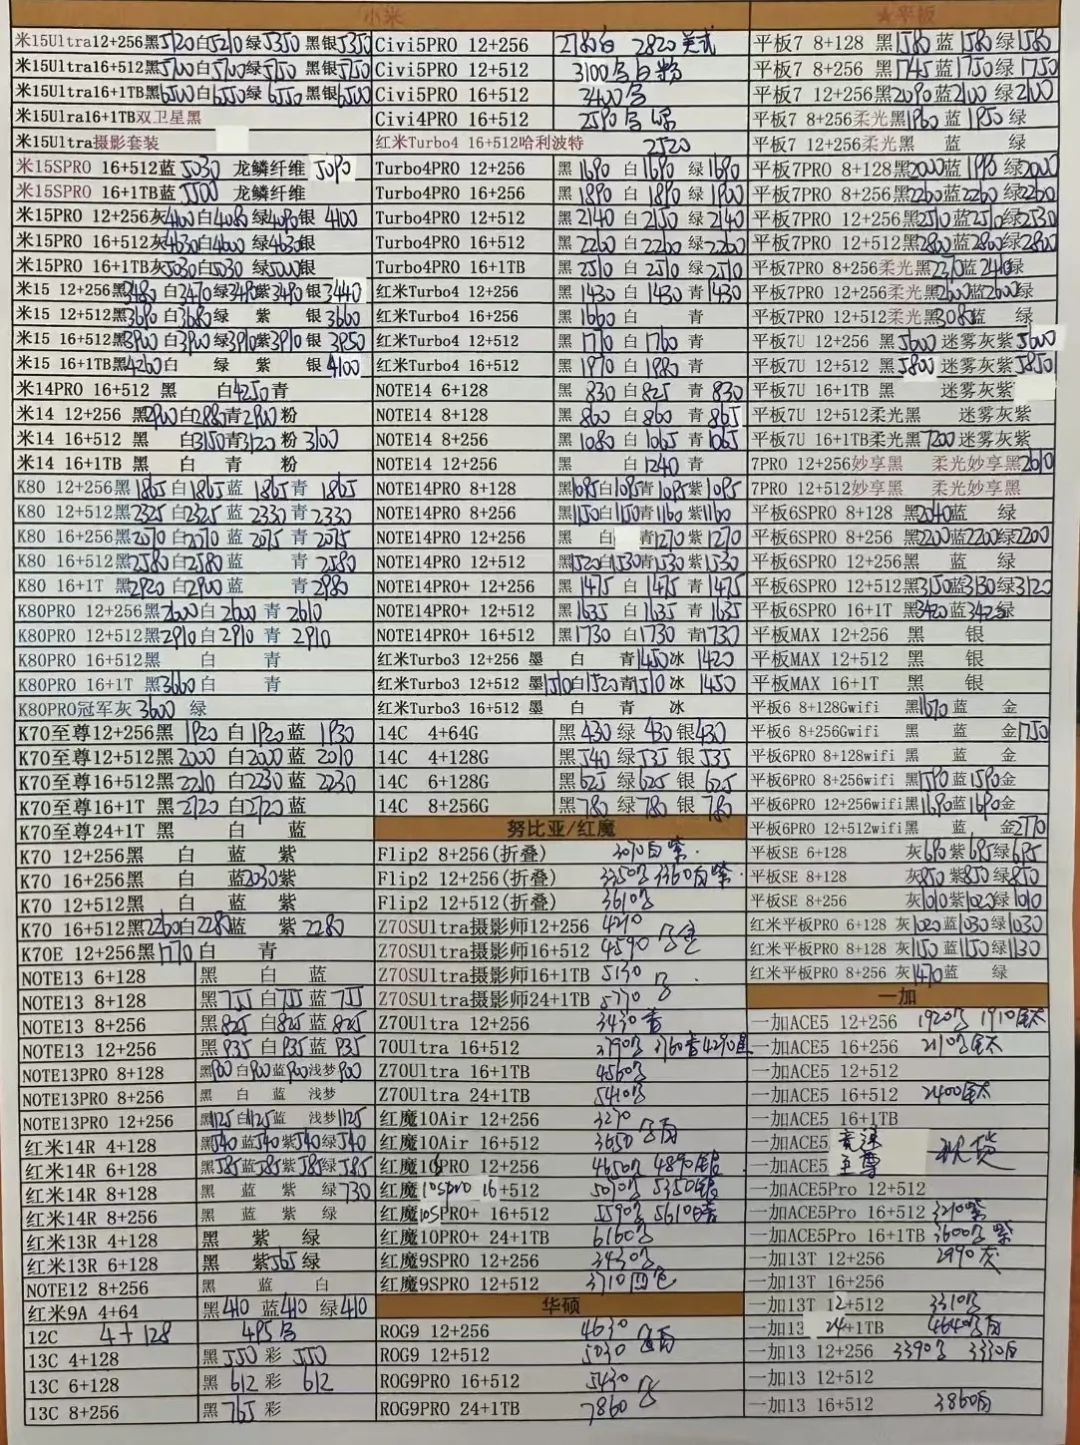 小米
米15Ultra12+256黑5120白5210绿5350 黑银5350
米15Ultra16+512黑5700白5700绿5750 黑银5750
米15Ultra16+1TB黑6500白6550绿6550黑银6500
米15Ulra16+1TB双卫星黑
米15Ultra摄影套装
米15SPRO 16+512蓝 5030 龙鳞纤维 5090
米15SPRO 16+1TB蓝 5500 龙鳞纤维
米15PRO 12+256灰4100白4080绿4090银 4100
米15PRO 16+512灰4630白4600 绿4630银
米15PRO 16+1TB灰5030白5030 绿5000银
米15 12+256黑3480 白3470绿3490紫3490 银3440
米15 12+512黑3690 白3680绿 紫 银3660
米15 16+512黑3900 白3900绿3910紫3910 银3850
米15 16+1TB黑4260白 绿 紫 银4100
米14PRO 16+512 黑 白4250青
米14 12+256 黑2900白2880青2900粉
米14 16+512 黑 白3150青3120 粉 3100
米14 16+1TB 黑 白 青 粉
K80 12+256黑1865白1865蓝 1865青 1865
K80 12+512黑2325 白2325 蓝 2330 青2330
K80 16+256黑2070白2070 蓝 2075 青2075
K80 16+512黑2580白2580 蓝 青2580
K80 16+1T 黑2920 白2900 蓝 青2980
K80PRO 12+256黑2600白 2600 青 2610
K80PRO 12+512黑2910白2910 青 2910
K80PRO 16+512黑 白 青
K80PRO 16+1T 黑3660白 青
K80PRO冠军灰 3600 绿
K70至尊12+256黑 1920 白 1920蓝 1930
K70至尊12+512黑2000 白2000蓝 2010
K70至尊16+512黑2210 白2230蓝 2230
K70至尊16+1T 黑2720 白2720蓝
K70至尊24+1T 黑 白 蓝
K70 12+256黑 白 蓝 紫
K70 16+256黑 白 蓝2030紫
K70 12+512黑 白 蓝 紫
K70 16+512黑2260白2280蓝 紫 2280
K70E 12+256黑1770白 青
NOTE13 6+128 黑 白 蓝
NOTE13 8+128 黑755白755蓝755
NOTE13 8+256 黑825 白825蓝825
NOTE13 12+256 黑935白935蓝935
NOTE13PRO 8+128 黑900白900蓝900浅梦900
NOTE13PRO 8+256 黑 白 蓝 浅梦
NOTE13PRO 12+256 黑1125白1125蓝 浅梦1125
红米14R 4+128 黑540蓝540紫540绿540
红米14R 6+128 黑585蓝585紫585绿585
红米14R 8+128 黑 蓝 紫 绿730
红米14R 8+256 黑 蓝 紫 绿
红米13R 4+128 黑 紫 绿
红米13R 6+128 黑 紫565绿
NOTE12 8+256 黑 蓝 白
红米9A 4+64 黑410 蓝410 绿410
12C 4+128 495
13C 4+128 黑550彩 550
13C 6+128 黑 612彩 612
13C 8+256 黑765彩
Civi5PRO 12+256 2780白 2820美式
Civi5PRO 12+512 3100 白粉
Civi5PRO 16+512 3400
Civi4PRO 16+512 2590
红米Turbo4 16+512哈利波特 2520
Turbo4PRO 12+256 黑 1690 白 1690 绿 1690
Turbo4PRO 16+256 黑 1890 白 1890 绿 1900
Turbo4PRO 12+512 黑2140 白2150 绿2140
Turbo4PRO 16+512 黑2260 白2260 绿2260
Turbo4PRO 16+1TB 黑2510 白2510 绿2510
红米Turbo4 12+256 黑 1430 白 1430 青 1430
红米Turbo4 16+256 黑1600 白 青
红米Turbo4 12+512 黑1710 白 1760 青
红米Turbo4 16+512 黑1970 白 1980 青
NOTE14 6+128 黑 830 白825 青 830
NOTE14 8+128 黑 860 白860 青 865
NOTE14 8+256 黑1080 白1065 青1065
NOTE14 12+256 黑 白1240 青
NOTE14PRO 8+128 黑1095白1095青1095紫1095
NOTE14PRO 8+256 黑1150白1150青1160 紫1160
NOTE14PRO 12+256 黑 白 青1270 紫1270
NOTE14PRO 12+512 黑1520白1530青1530紫1530
NOTE14PRO+ 12+256 黑1475 白1475 青1475
NOTE14PRO+ 12+512 黑1635 白1635 青1635
NOTE14PRO+ 16+512 黑1730 白1730 青1730
红米Turbo3 12+256 墨 白 青1450冰 1420
红米Turbo3 12+512 墨1510白1520青1510 冰 1450
红米Turbo3 16+512 墨 白 青 冰
14C 4+64G 黑 430 绿 430 银430
14C 4+128G 黑540 绿535 银535
14C 6+128G 黑625 绿625 银625
14C 8+256G 黑780 绿780 银 780
努比亚/红魔
Flip2 8+256(折叠) 3070白紫
Flip2 12+256(折叠) 3350 3360白紫
Flip2 12+512(折叠) 3610
Z70SUltra摄影师12+256 4210
Z70SUltra摄影师16+512 4590
Z70SUltra摄影师16+1TB 5130
Z70SUltra摄影师24+1TB 5770
Z70Ultra 12+256 3430青
70Ultra 16+512 3790 3760青4290
Z70Ultra 16+1TB 4560
Z70Ultra 24+1TB 5410
红魔10Air 12+256 3270
红魔10Air 16+512 3650
红魔10PRO 12+256 4650 4890银
红魔10spro 16+512 5070 5350银
红魔10SPRO+ 16+512 5590 5610
红魔10PRO+ 24+1TB 6160
红魔9SPRO 12+256 3430
红魔9SPRO 12+512 3710四色
华硕
ROG9 12+256 4630
ROG9 12+512 5030
ROG9PRO 16+512 5430
ROG9PRO 24+1TB 7860
★平板
平板7 8+128 黑1580蓝 1580绿1580
平板7 8+256 黑1745蓝1750绿1750
平板7 12+256 黑2090蓝2100 绿2100
平板7 8+256柔光黑1960 蓝 1950绿
平板7 12+256柔光黑 蓝 绿
平板7PRO 8+128黑2000蓝 1990绿2000
平板7PRO 8+256黑2260蓝2260绿2260
平板7PRO 12+256黑2510蓝2510绿2530
平板7PRO 12+512黑2800蓝2800绿2800
平板7PRO 8+256柔光黑2370蓝2410绿
平板7PRO 12+256柔光黑2600蓝2600绿
平板7PRO 12+512柔光黑3080蓝 绿
平板7U 12+256 黑5600 迷雾灰紫5600
平板7U 12+512 黑5800 迷雾灰紫5850
平板7U 16+1TB 黑 迷雾灰紫
平板7U 12+512柔光黑 迷雾灰紫
平板7U 16+1TB柔光黑7200迷雾灰紫
7PRO 12+256妙享黑 柔光妙享黑2610
7PRO 12+512妙享黑 柔光妙享黑
平板6SPRO 8+128 黑2040蓝 绿
平板6SPRO 8+256 黑2200蓝2200绿2200
平板6SPRO 12+256黑 蓝 绿
平板6SPRO 12+512黑3150蓝3130绿3120
平板6SPRO 16+1T 黑3420蓝3425绿
平板MAX 12+256 黑 银
平板MAX 12+512 黑 银
平板MAX 16+1T 黑 银
平板6 8+128Gwifi 黑1670蓝 金
平板6 8+256Gwifi 黑 蓝 金1750
平板6PRO 8+128wifi 黑 蓝 金
平板6PRO 8+256wifi 黑1590蓝1590金
平板6PRO 12+256wifi 黑1690蓝1690金
平板6PRO 12+512wifi黑 蓝 金2770
平板SE 6+128 灰690紫695绿695
平板SE 8+128 灰850紫850绿850
平板SE 8+256 灰1010紫1020绿1010
红米平板PRO 6+128 灰1020蓝1030绿1030
红米平板PRO 8+128 灰1150蓝1150绿1130
红米平板PRO 8+256 灰1470蓝 绿
一加
一加ACE5 12+256 1920 1910钛
一加ACE5 16+256 2110钛
一加ACE5 12+512
一加ACE5 16+512 2400钛
一加ACE5 16+1TB
一加ACE5 竞速
一加ACE5 至尊 秋货
一加ACE5Pro 12+512
一加ACE5Pro 16+512 3210紫
一加ACE5Pro 16+1TB 3600紫
一加13T 12+256 2990灰
一加13T 16+256
一加13T 12+512 3310
一加13 24+1TB 4640
一加13 12+256 3390 3330白
一加13 12+512
一加13 16+512 3860白